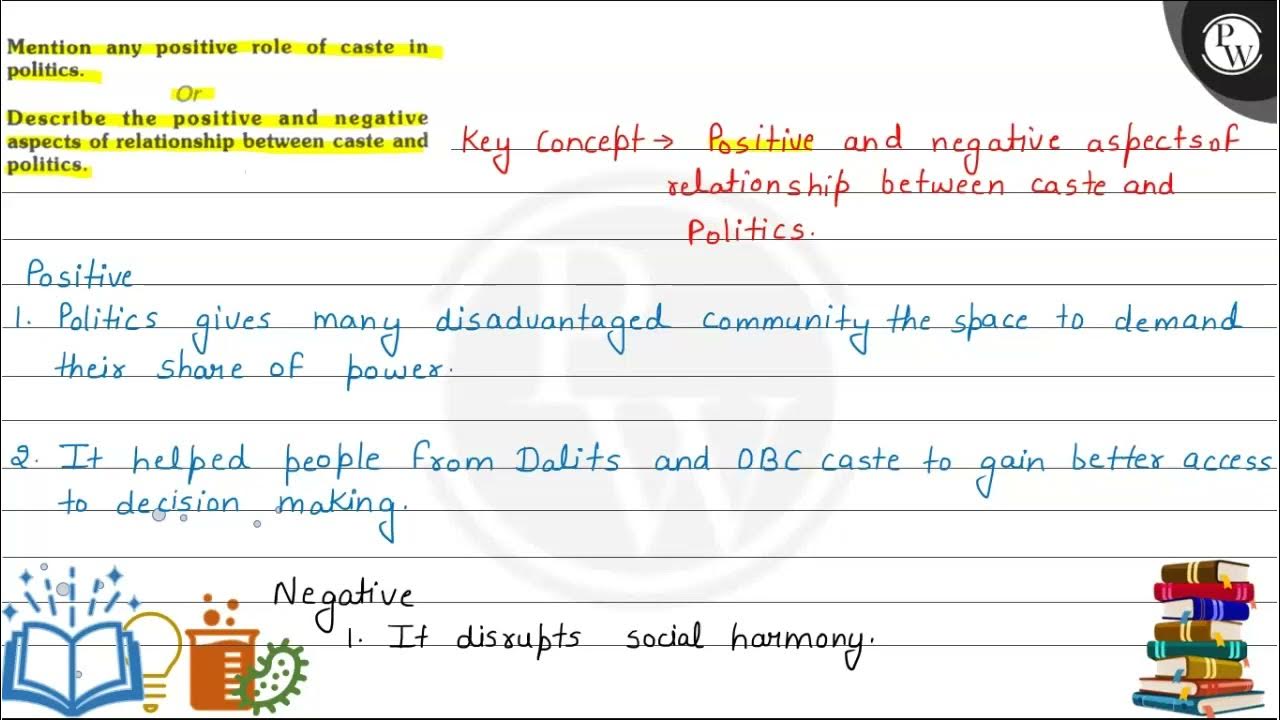 Mention any positive role of caste in
politics.
Or
Describe the positive and negative
aspects of relationship between caste and
politics.
Key Concept → Positive and negative aspects of
relationship between caste and
Politics.
Positive
1. Politics gives many disadvantaged community the space to demand
their share of power.
2. It helped people from Dalits and OBC caste to gain better access
to decision making.
Negative
1. It disrupts social harmony.
PW
PW